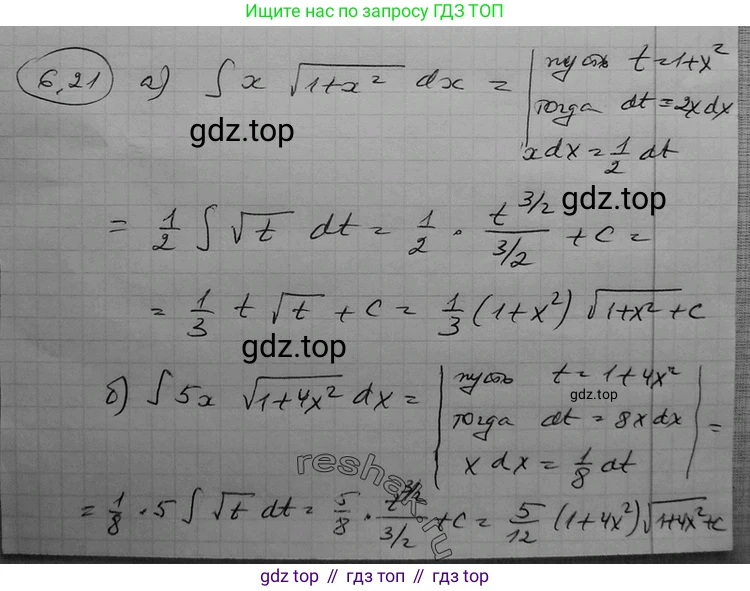 Ищите нас по запросу ГДЗ ТОП
6,21 а) ∫ x √(1+x²) dx = | пусть t=1+x²
тогда dt=2xdx
xdx = 1/2 dt
gdz.top
= 1/2 ∫ √t dt = 1/2 · t^(3/2) / (3/2) + C =
gdz.top
= 1/3 t √t + C = 1/3 (1+x²) √(1+x²) + C
gdz.top
б) ∫ 5x √(1+4x²) dx = | пусть t = 1+4x²
gdz.top
тогда dt = 8xdx | =
x dx = 1/8 dt
reshak.ru
= 1/8 · 5 ∫ √t dt = 5/8 · t^(3/2) / (3/2) + C = 5/12 (1+4x²) √(1+4x²) + C
gdz top // гдз топ // gdz.top // гдз.топ